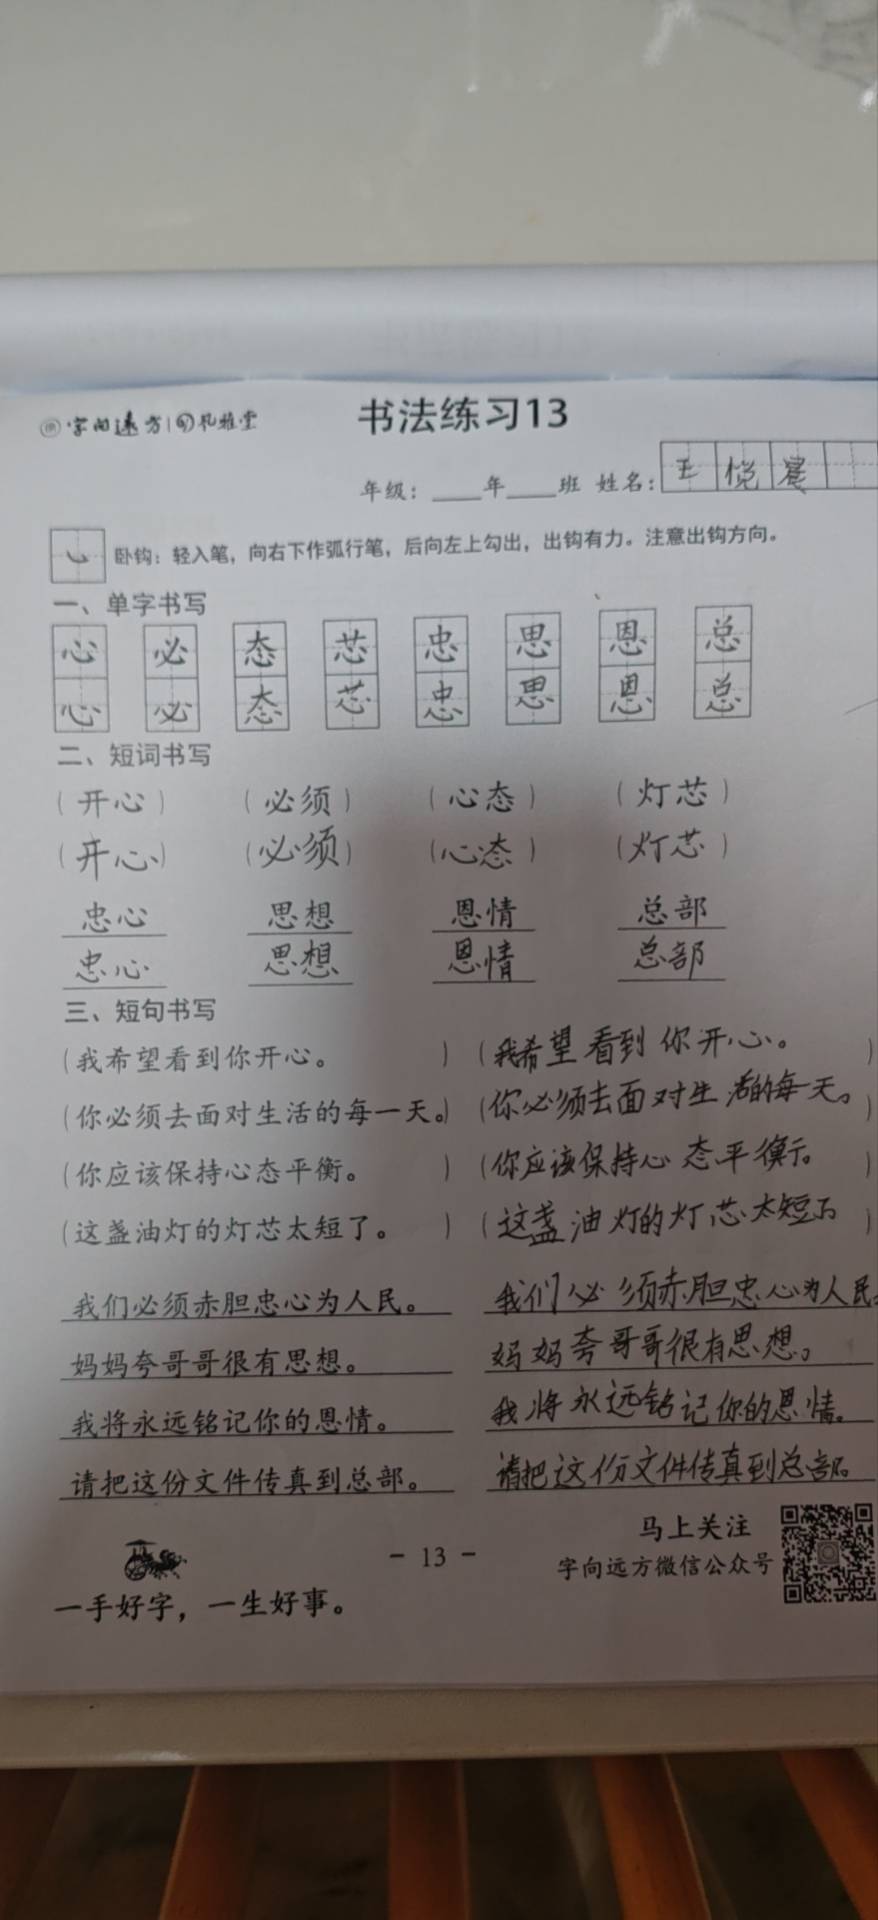 字向远方 礼雅堂
书法练习13
年级：____年____班 姓名：王悦
卧钩：轻入笔，向右下作弧行笔，后向左上勾出，出钩有力。注意出钩方向。
一、单字书写
心 必 态 芯 忠 思 恩 总
心 必 态 芯 忠 思 恩 总
二、短词书写
（开心） （必须） （心态） （灯芯）
（开心） （必须） （心态） （灯芯）
忠心 思想 恩情 总部
忠心 思想 恩情 总部
三、短句书写
（我希望看到你开心。） （我希望看到你开心。）
（你必须去面对生活的每一天。） （你必须去面对生活的每一天。）
（你应该保持心态平衡。） （你应该保持心态平衡。）
（这盏油灯的灯芯太短了。） （这盏油灯的灯芯太短了。）
我们必须赤胆忠心为人民。 我们必须赤胆忠心为人民。
妈妈夸哥哥很有思想。 妈妈夸哥哥很有思想。
我将永远铭记你的恩情。 我将永远铭记你的恩情。
请把这份文件传真到总部。 请把这份文件传真到总部。
马上关注
- 13 -
字向远方微信公众号
一手好字，一生好事。